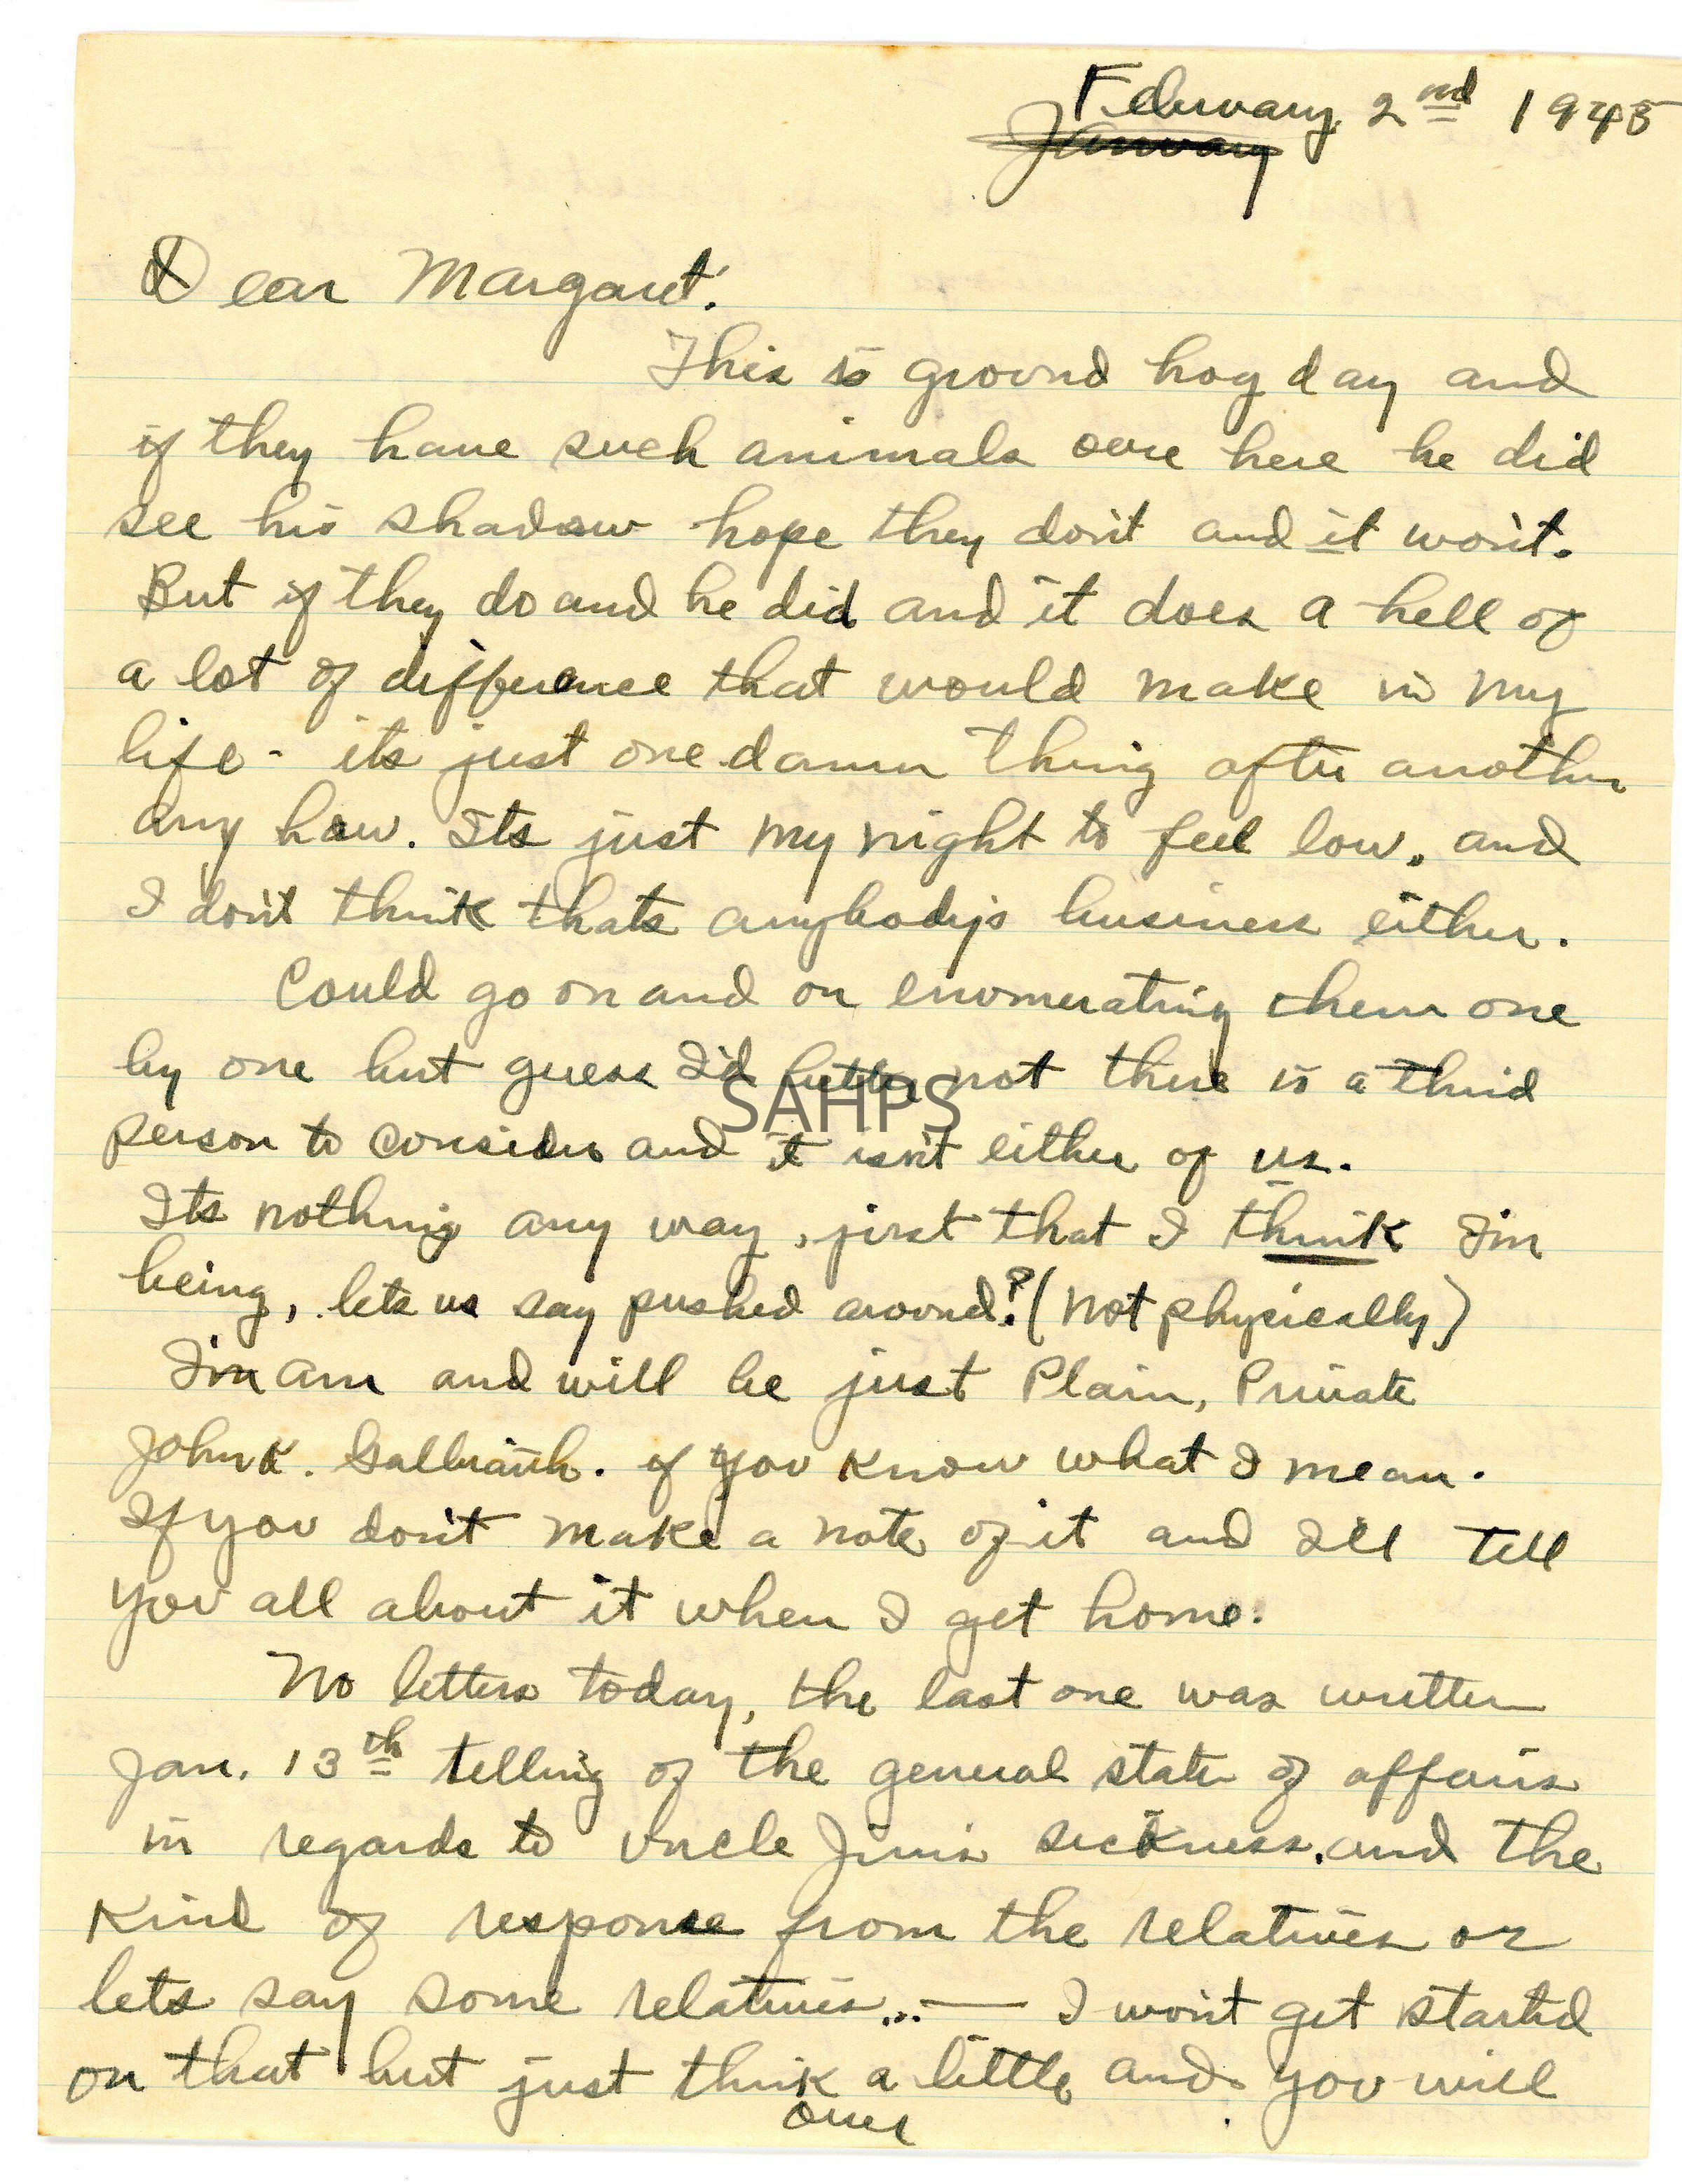 February 2nd 1945
January
Dear Margaret:
This is ground hog day and
if they have such animals over here he did
see his shadow hope they don't and it won't.
But if they do and he did and it does a hell of
a lot of difference that would make in my
life - its just one damn thing after another
any how. Its just my night to feel low. and
I don't think thats anybody's business either.
Could go on and on enumerating them one
by one but guess I'd better not there is a third
person to consider and it isn't either of us.
SAHPS
Its nothing any way, just that I think I'm
being, lets us say pushed around? (not physically)
I'm am and will be just Plain, Private
John K. Galbraith. if you know what I mean.
If you don't make a note of it and I'll tell
you all about it when I get home.
No letters today, the last one was written
Jan. 13th telling of the general state of affairs
in regards to Uncle Jim's sickness. and the
kind of response from the relatives or
lets say some relatives... — I won't get started
on that but just think a little and you will
over